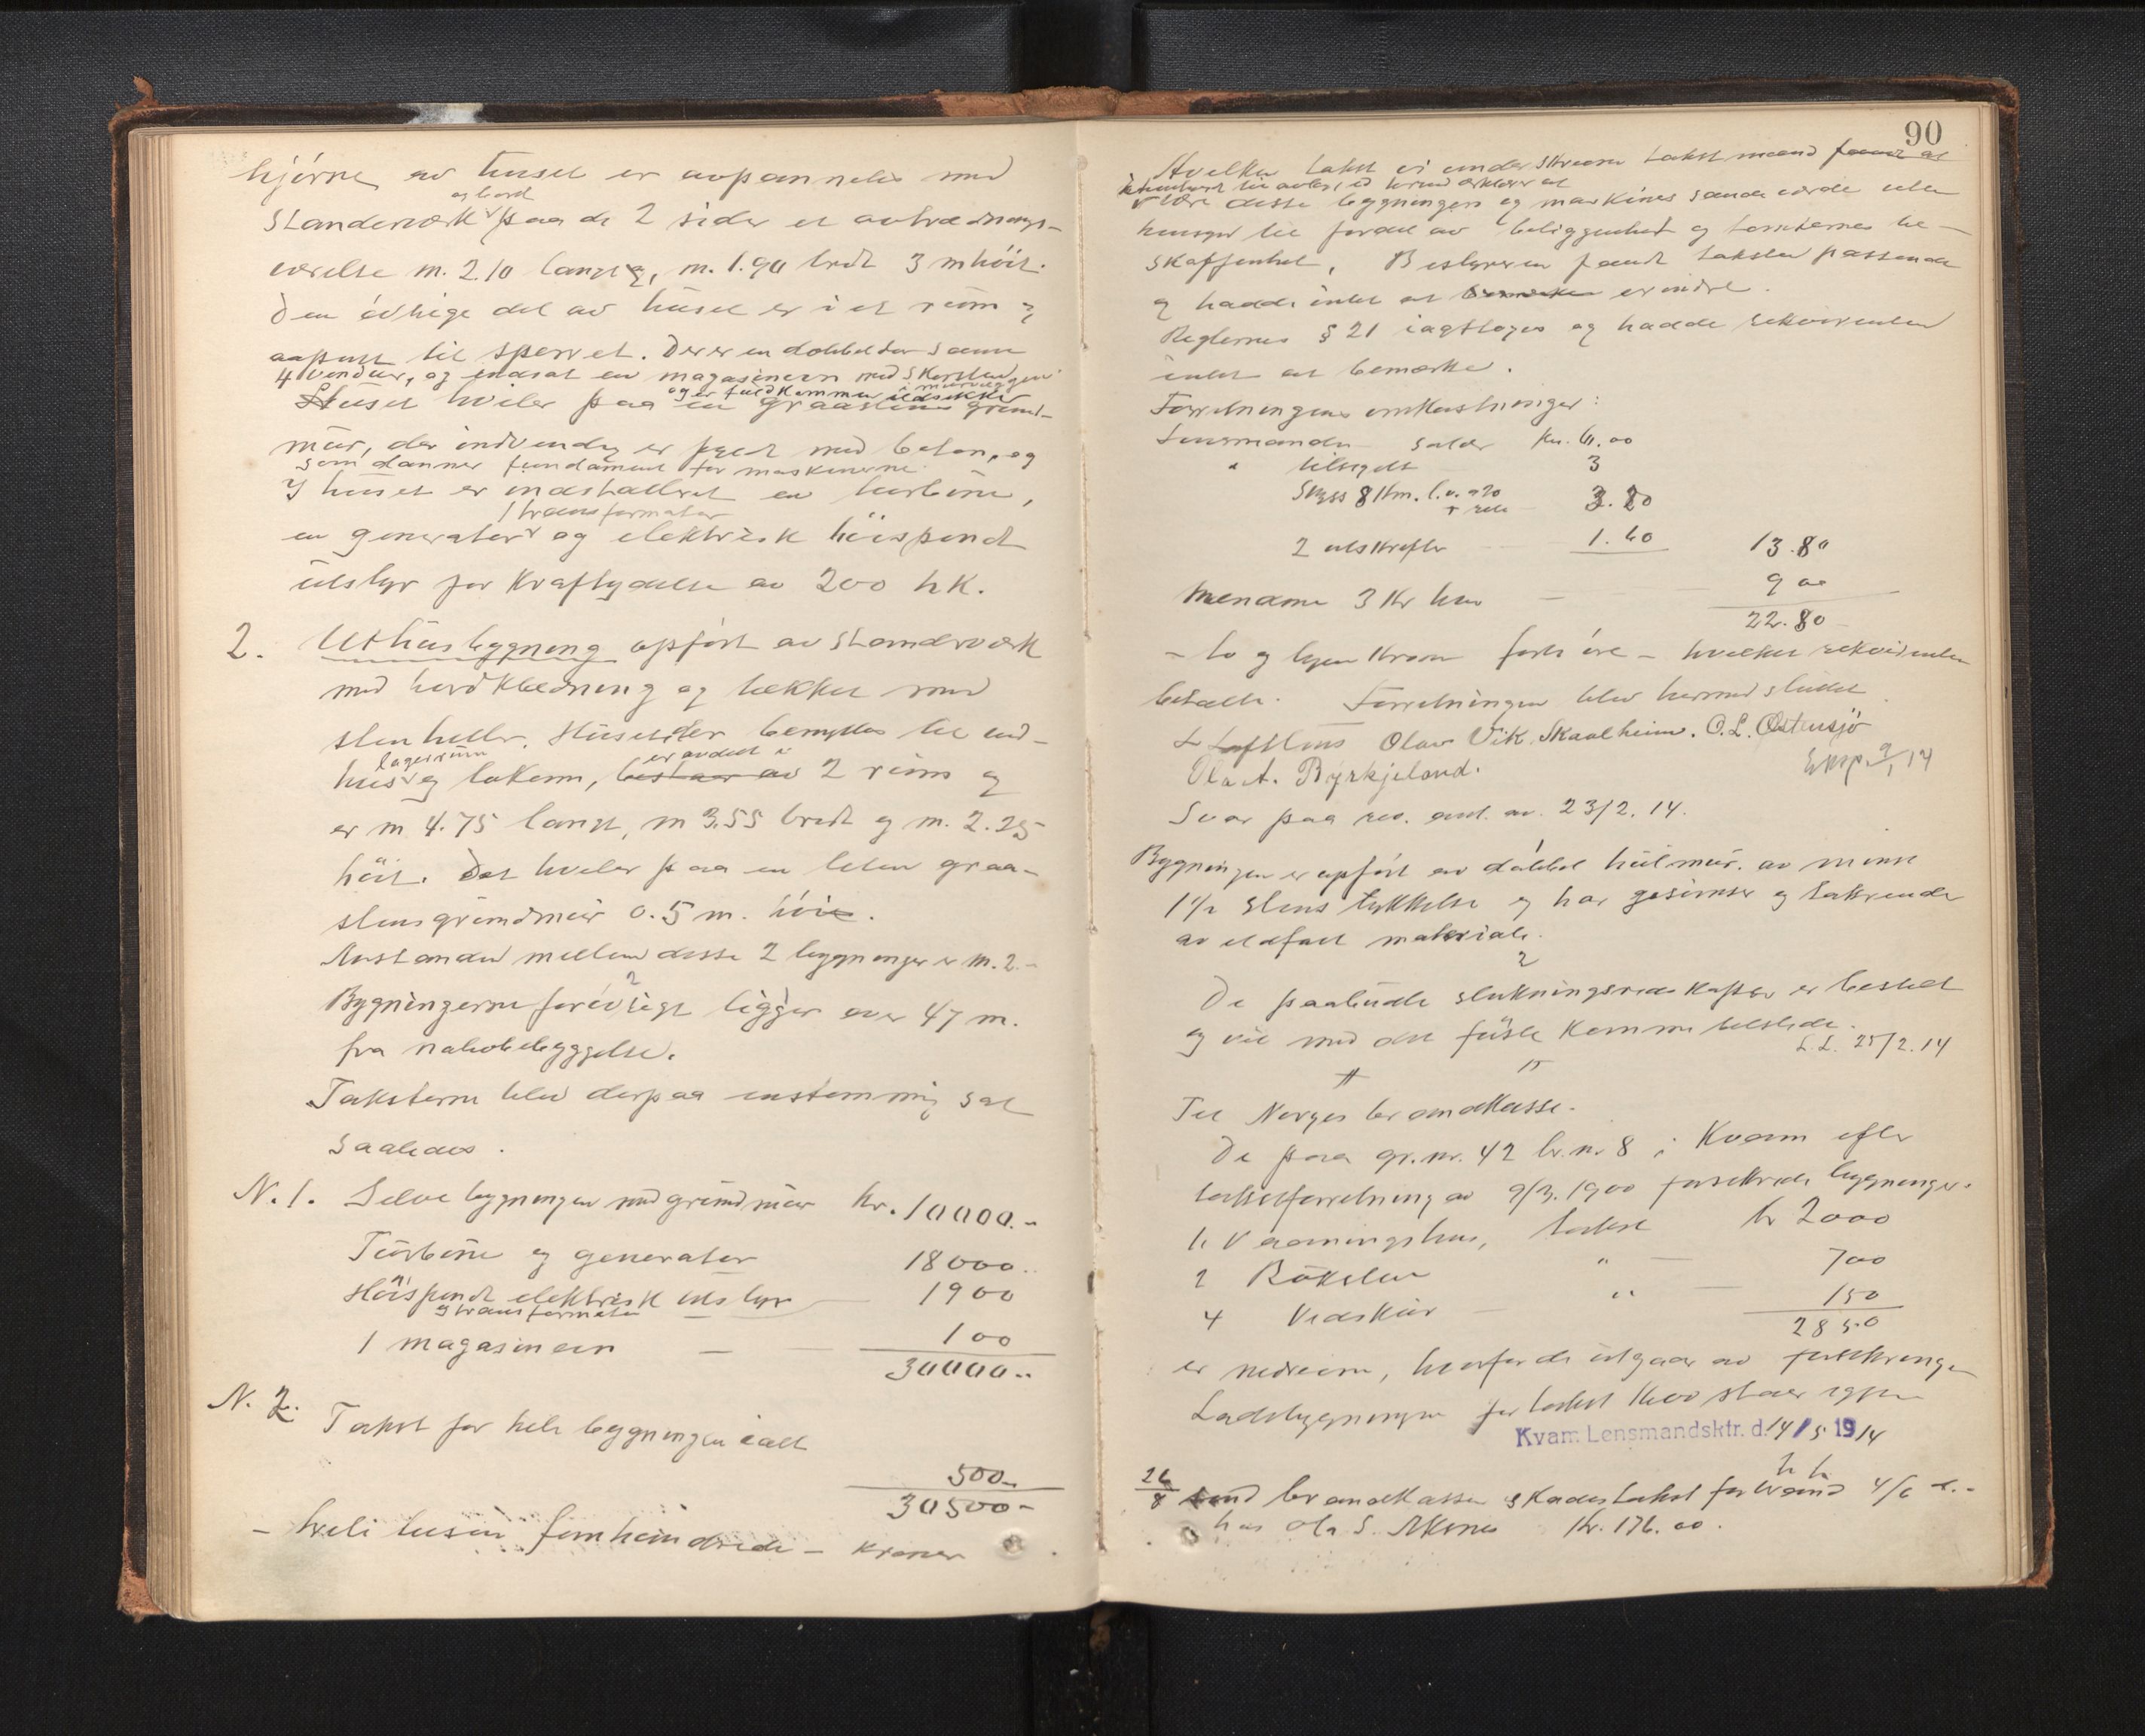 hjörne av huset er avpannelet med
og bord
Standerværk paa de 2 sider et avtrædnings-
værelse m. 2.10 langt, m. 1.90 bredt 3 m höit.
Den övrige del av huset er i et rum og
aapent til sperret. Der er en dobbelt dør samt
4 vinduer, og indsat en magasinovn med Skorsten
i murvæggen
og er fuldkommen ildsikker
Huset hviler paa en graastens grund-
mur, der indvendig er fyldt med beton, og
som danner fundament for maskinerne
I huset er indstalleret en turbine,
1 transformator
en generator og elektrisk höispendt
utstyr for Kraftydelse av 200 hk.
2. Uthusbygning opfört av Standerværk
med bordklædning og tækket med
stenheller. Huset der benyttes til ved-
lagerrum er avdelt i
hus og lokum, bestaar av 2 rums og
er m 4.75 langt, m 3.55 bredt og m. 2.25
höit. Det hviler paa en liten graa-
stensgrundmur 0.5 m. höie.
Avstanden mellem disse 2 bygninger er m. 2.-
2
Bygningerne forövrigt ligger over 47 m.
fra nabobebyggelse.
Taksterne blev derpaa enstemmig sat
saaledes.
N. 1. Selve bygningen med grundmur Kr. 10000.-
Turbine og generator 18000..
Höispendt elektrisk utstyr 1900
og transformator
1 magasinovn 100
30000..
N. 2. Takst for hele bygningen ialt
500-
30500-
- treti tusin femhundrede - Kroner
90
Hvilken takst vi underskrevne takstmænd fandt at
være disse bygningers og maskiners sande værdi uten
hensyn til fordel av beliggenhet og tomternes be-
skaffenhet. Bestyreren fandt taksten passende
og hadde intet at bemærke erindre.
Reglernes § 21 iagttoges og hadde rekvirenten
intet at bemærke.
Forretningens omkostninger:
Lensmanden salær Kr. 6.00
" tilsydelt 3
Skyss 8 Km. 3.20
2 utskrifter 1.60 13.80
Mændene 3 Kr hver 9 00
22.80
- to og tyve Kroner otti öre - hvilket rekvirenten
betalte. Forretningen blev hermed sluttet
L Olav Vik. Skaalheim. O. L. Östensjö
Ola A. Byrkjeland. Eksp. 9/1 14
Svar paa rev. ant. av. 23/2. 14.
1
Bygningen er opfört av dobbel hulmur. av minst
1 1/2 Stens tykkelse og har gesimser og takrender
av ildfast materiale.
2
De paabudte slukningsredskaper er bestilt
og vil med det förste komme tilstede.
L. L. 25/2. 14
Til Norges brandkasse.
De paa gr. nr. 42 br. nr. 8 i Kvam efter
takstforretning av 9/3. 1900 forsikrede bygninger.
1. Vaaningshus, takst kr 2000
2 Rökstue " 700
4 Vedskur " 150
2850
er nedrevne, hvorfor de utgaar av forsikringen
Ladebygningen for takst 1600 staar igjen
Kvam Lensmandsktr. d. 14/5 1914
26/8 send brandkassen skadestakst for brand 4/6 d..
hos Ola S. Aksnes Kr. 176.00.